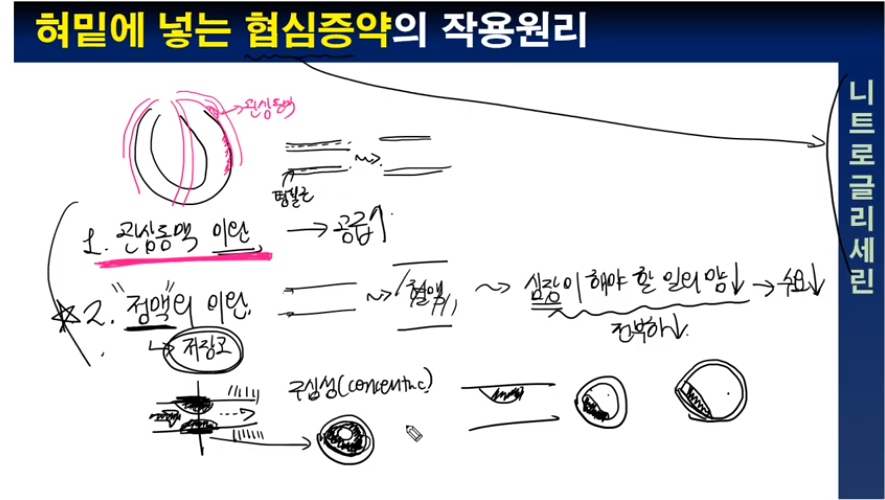 혀밑에 넣는 협심증약의 작용원리
니트로글리세린
관상동맥
평활근
1. 관상동맥 이완 → 공급↑
☆2. "정맥"의 이완 혈액 심장이 해야 할 일의 양↓ → 수요↓
전부하↓
↳ 저장고
구심성(concentric)